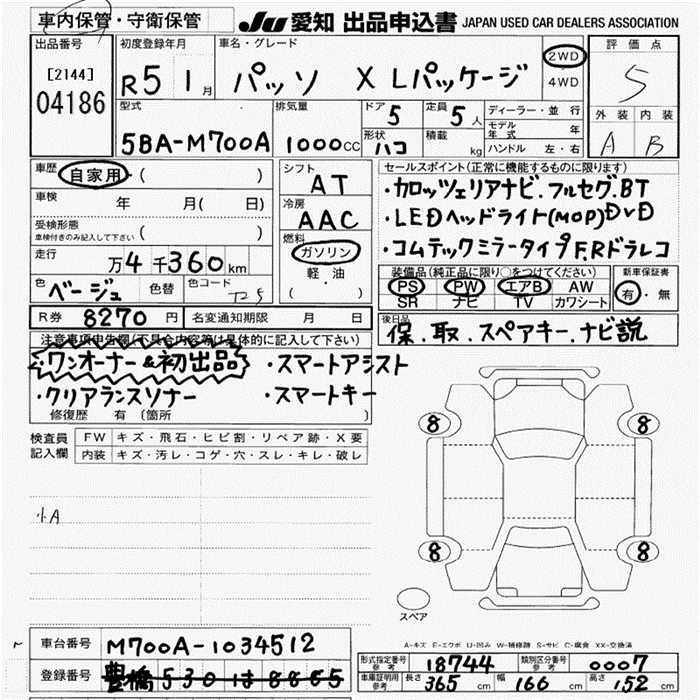 車内保管・守衛保管
JU 愛知 出品申込書 JAPAN USED CAR DEALERS ASSOCIATION
出品番号 初度登録年月 車名・グレード 評価点
[2144] 04186 R5 1月 パッソ X Lパッケージ 2WD 4WD S
外装 内装
A B
型式 排気量 ドア 5 定員 5人 ディーラー・並行
モデル年式 年
5BA-M700A 1000CC 形状 ハコ 積載 kg ハンドル 左・右
車歴 自家用・( )
車検 年 月( 日)
受検形態
車検付きのみ記入して下さい ( )
走行 万4千360km
色 ベージュ 色替 色コード T25
R券 8270円 名変通知期限 月 日
シフト AT
冷房 AAC
燃料 ガソリン
軽油
( )
セールスポイント(正常に機能するものに限ります)
・カロッツェリアナビ.フルセグ.BT
・LEDヘッドライト(MOP)DVD
・コムテックミラータイプF.Rドラレコ
装備品(純正品に限り○をつけてください) 新車保証書
PS PW エアB AW 有・無
SR ナビ TV カワシート
後日品
保.取.スペアキー.ナビ説
注意事項申告欄(不具合内容等は具体的に記入して下さい)
・ワンオーナー&初出品 ・スマートアシスト
・クリアランスソナー ・スマートキー
修復歴 有 (箇所 )
検査員記入欄 FW キズ・飛石・ヒビ割・リペア跡・X要
内装 キズ・汚レ・コゲ・穴・スレ・キレ・破レ
小A
8 8
8 8
スペア
A-キズ E-エクボ U-凹み W-補修跡 S-サビ C-腐食 XX-交換済
車台番号 M700A-1034512
登録番号 豊橋530は8865
形式指定番号 参考 18744 類別区分番号 参考 0007
車庫証明用 参考 長さ 365cm 幅 166cm 高さ 152cm